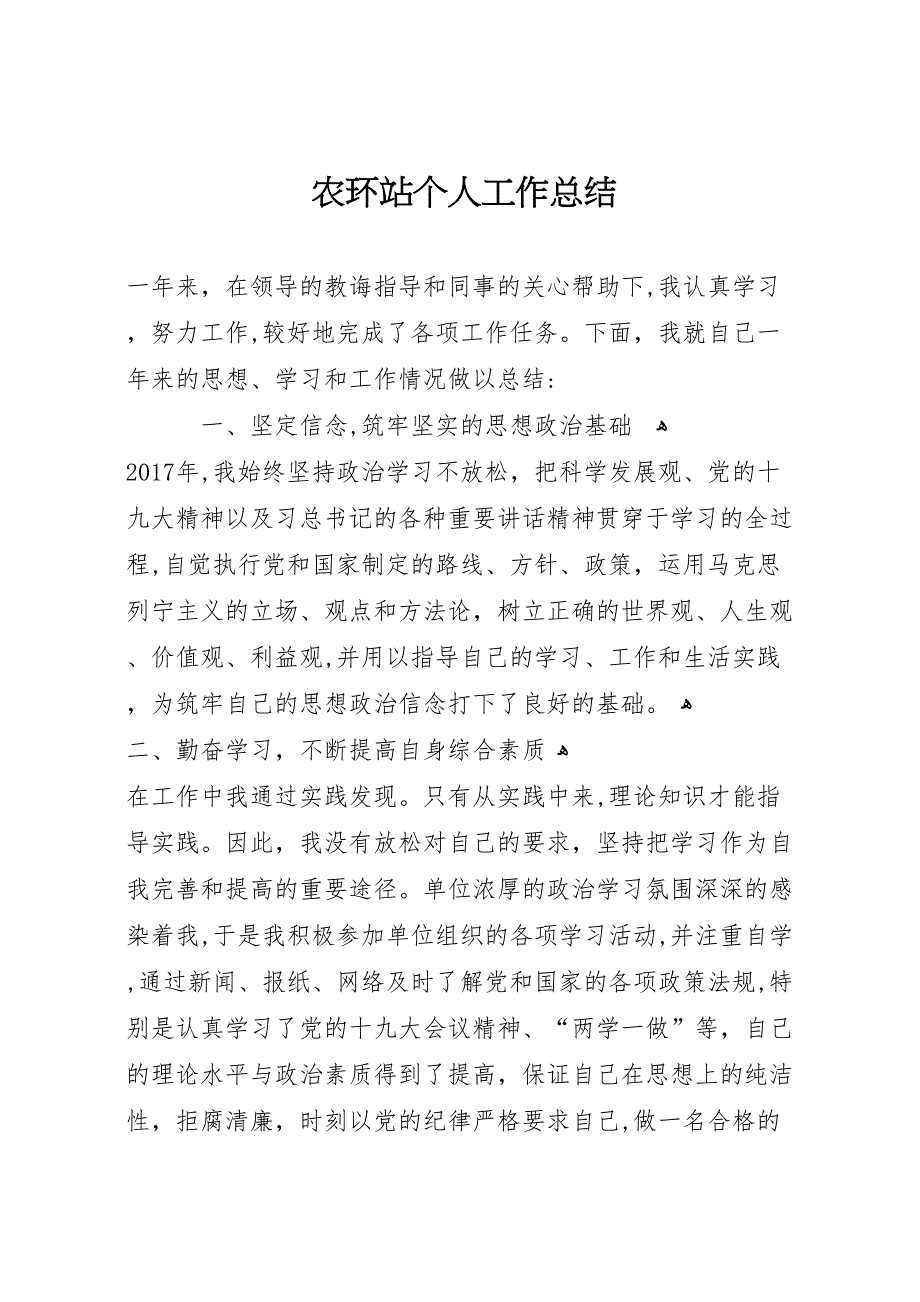 农环站个人工作总结
一年来，在领导的教诲指导和同事的关心帮助下,我认真学习
，努力工作,较好地完成了各项工作任务。下面，我就自己一
年来的思想、学习和工作情况做以总结:
一、坚定信念,筑牢坚实的思想政治基础 ﻫ
2017年,我始终坚持政治学习不放松，把科学发展观、党的十
九大精神以及习总书记的各种重要讲话精神贯穿于学习的全过
程,自觉执行党和国家制定的路线、方针、政策，运用马克思
列宁主义的立场、观点和方法论，树立正确的世界观、人生观
、价值观、利益观,并用以指导自己的学习、工作和生活实践
，为筑牢自己的思想政治信念打下了良好的基础。 ﻫ
二、勤奋学习，不断提高自身综合素质 ﻫ
在工作中我通过实践发现。只有从实践中来,理论知识才能指
导实践。因此，我没有放松对自己的要求，坚持把学习作为自
我完善和提高的重要途径。单位浓厚的政治学习氛围深深的感
染着我,于是我积极参加单位组织的各项学习活动,并注重自学
,通过新闻、报纸、网络及时了解党和国家的各项政策法规,特
别是认真学习了党的十九大会议精神、“两学一做”等，自己
的理论水平与政治素质得到了提高，保证自己在思想上的纯洁
性，拒腐清廉，时刻以党的纪律严格要求自己,做一名合格的